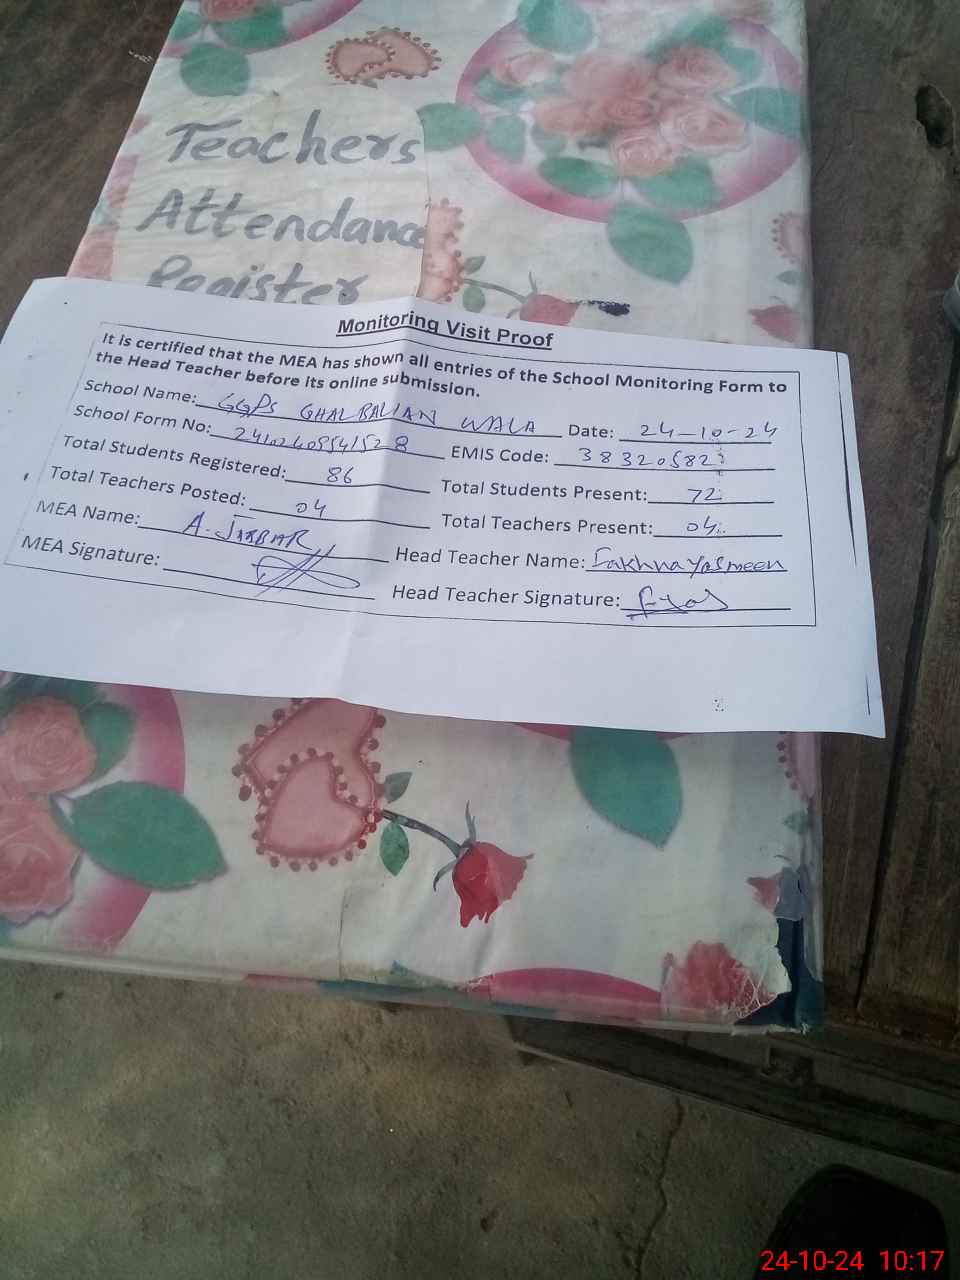 Teachers
Attendance
Register
Monitoring Visit Proof
It is certified that the MEA has shown all entries of the School Monitoring Form to
the Head Teacher before its online submission.
School Name: GGPS GHALBALIAN WALA Date: 24-10-24
School Form No: EMIS Code: 38320582
Total Students Registered: 86 Total Students Present: 72
Total Teachers Posted: 04 Total Teachers Present: 04
MEA Name: A. JABBAR Head Teacher Name: Yasmeen
MEA Signature: Head Teacher Signature:
24-10-24 10:17